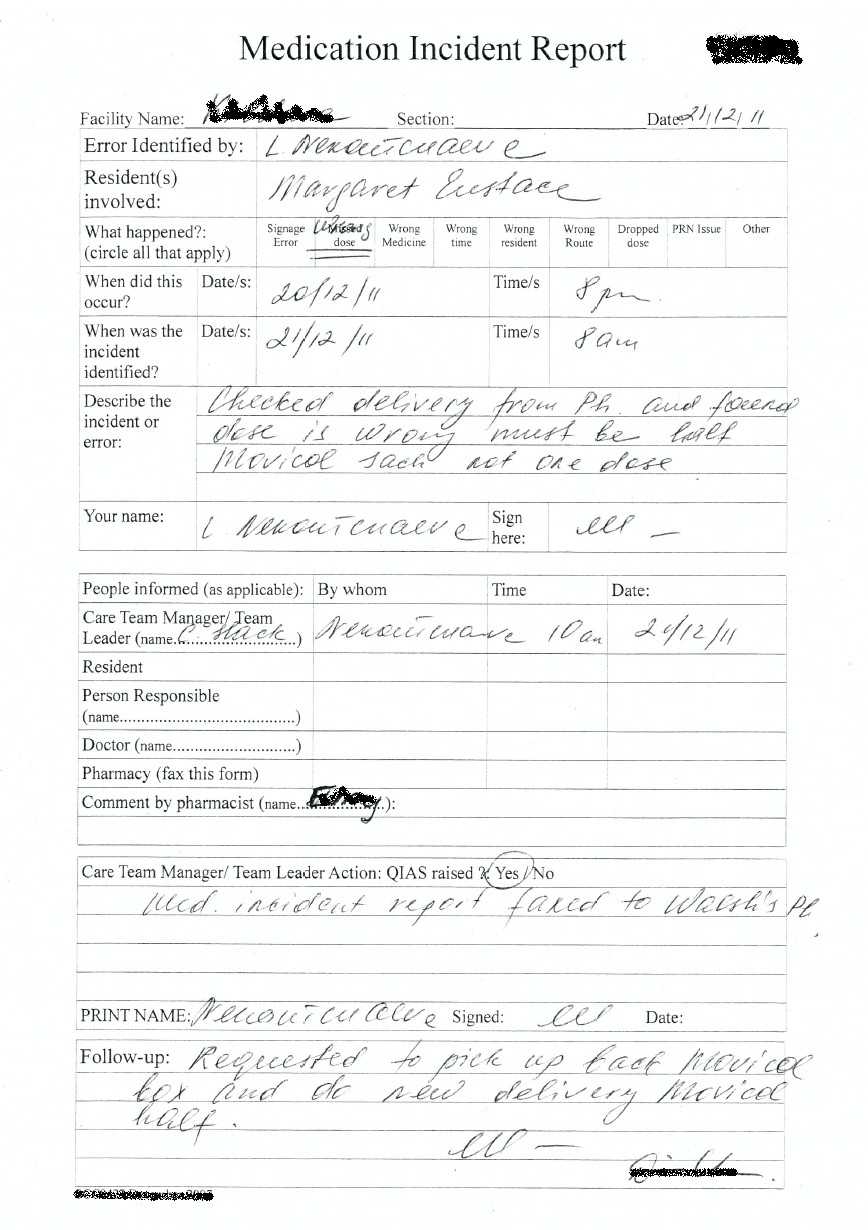 Medication Incident Report
Facility Name: Section: Date: 21/12/11
Error Identified by: L
Resident(s) involved: Margaret Eustace
What happened?: (circle all that apply)
Signage Error
Wrong dose
Wrong Medicine
Wrong time
Wrong resident
Wrong Route
Dropped dose
PRN Issue
Other
When did this occur? Date/s: 20/12/11 Time/s 8pm.
When was the incident identified? Date/s: 21/12/11 Time/s 8am
Describe the incident or error:
Checked delivery from Ph. and found
dose is wrong must be half
Movicol sach not one dose
Your name: L Sign here:
People informed (as applicable): By whom Time Date:
Care Team Manager/ Team
Leader (name C. Slack) 10am 21/12/11
Resident
Person Responsible
(name.......................................)
Doctor (name............................)
Pharmacy (fax this form)
Comment by pharmacist (name..................):
Care Team Manager/ Team Leader Action: QIAS raised ? Yes / No
Med. incident report faxed to Walsh's Ph
PRINT NAME: Signed: Date:
Follow-up: Requested to pick up back Movicol
box and do new delivery Movicol
half.